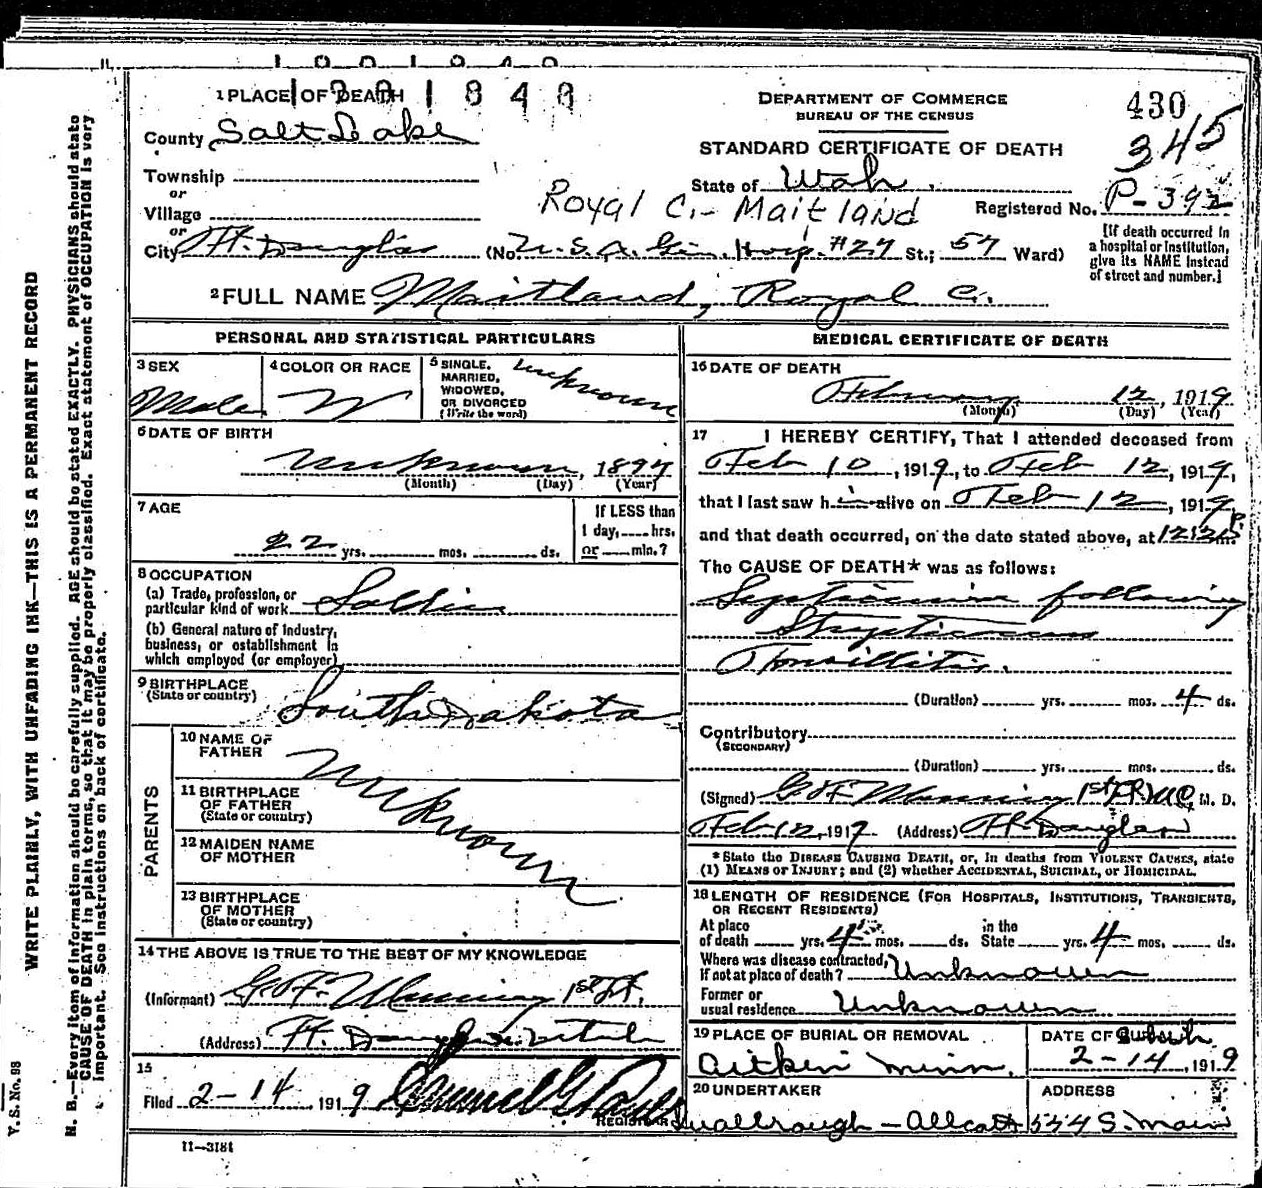 1 PLACE OF DEATH
1001840
430
DEPARTMENT OF COMMERCE
BUREAU OF THE CENSUS
345
County Salt Lake
STANDARD CERTIFICATE OF DEATH
Township
or
State of Utah
P-392
Village
Royal C.- Maitland
Registered No.
or
City Ft. Douglas (No. U.S.A. Gen. Hosp. #27 St.; 57 Ward)
[If death occurred in
a hospital or institution,
give its NAME instead
of street and number.]
2 FULL NAME Maitland, Royal C.
PERSONAL AND STATISTICAL PARTICULARS
3 SEX
Male.
4 COLOR OR RACE
W
5 SINGLE,
MARRIED,
WIDOWED,
OR DIVORCED
(Write the word)
unknown
6 DATE OF BIRTH
unknown, 1897
(Month) (Day) (Year)
7 AGE
22 yrs. mos. ds.
If LESS than
1 day, hrs.
or min.?
8 OCCUPATION
(a) Trade, profession, or
particular kind of work Soldier
(b) General nature of Industry,
business, or establishment in
which employed (or employer)
9 BIRTHPLACE
(State or country) South Dakota
PARENTS
10 NAME OF
FATHER
11 BIRTHPLACE
OF FATHER
(State or country)
Unknown
12 MAIDEN NAME
OF MOTHER
13 BIRTHPLACE
OF MOTHER
(State or country)
14 THE ABOVE IS TRUE TO THE BEST OF MY KNOWLEDGE
(Informant) G.F. 1st Lt.
(Address) Ft. Douglas Utah
15
Filed 2-14, 1919
REGISTRAR
11-3184
MEDICAL CERTIFICATE OF DEATH
16 DATE OF DEATH
February 12, 1919
(Month) (Day) (Year)
17 I HEREBY CERTIFY, That I attended deceased from
Feb 10, 1919, to Feb 12, 1919,
that I last saw him alive on Feb 12, 1919,
and that death occurred, on the date stated above, at P.m.
The CAUSE OF DEATH* was as follows:
Septicemia following
Streptococcus
Tonsillitis.
(Duration) yrs. mos. 4 ds.
Contributory
(SECONDARY)
(Duration) yrs. mos. ds.
(Signed) G.F. 1st Lt MC, M. D.
Feb 12, 1919 (Address) Ft. Douglas
*State the DISEASE CAUSING DEATH, or, in deaths from VIOLENT CAUSES, state
(1) MEANS OF INJURY; and (2) whether ACCIDENTAL, SUICIDAL, OR HOMICIDAL.
18 LENGTH OF RESIDENCE (FOR HOSPITALS, INSTITUTIONS, TRANSIENTS,
OR RECENT RESIDENTS)
At place
of death yrs. 4 mos. ds.
in the
State yrs. 4 mos. ds.
Where was disease contracted,
if not at place of death? Unknown
Former or
usual residence Unknown
19 PLACE OF BURIAL OR REMOVAL
Aitkin Minn.
DATE OF
2-14, 1919
20 UNDERTAKER
ADDRESS
544 S. Main
WRITE PLAINLY, WITH UNFADING INK—THIS IS A PERMANENT RECORD
N. B.—Every item of information should be carefully supplied. AGE should be stated EXACTLY. PHYSICIANS should state
CAUSE OF DEATH in plain terms, so that it may be properly classified. Exact statement of OCCUPATION is very
important. See instructions on back of certificate.
V. S. No. 98